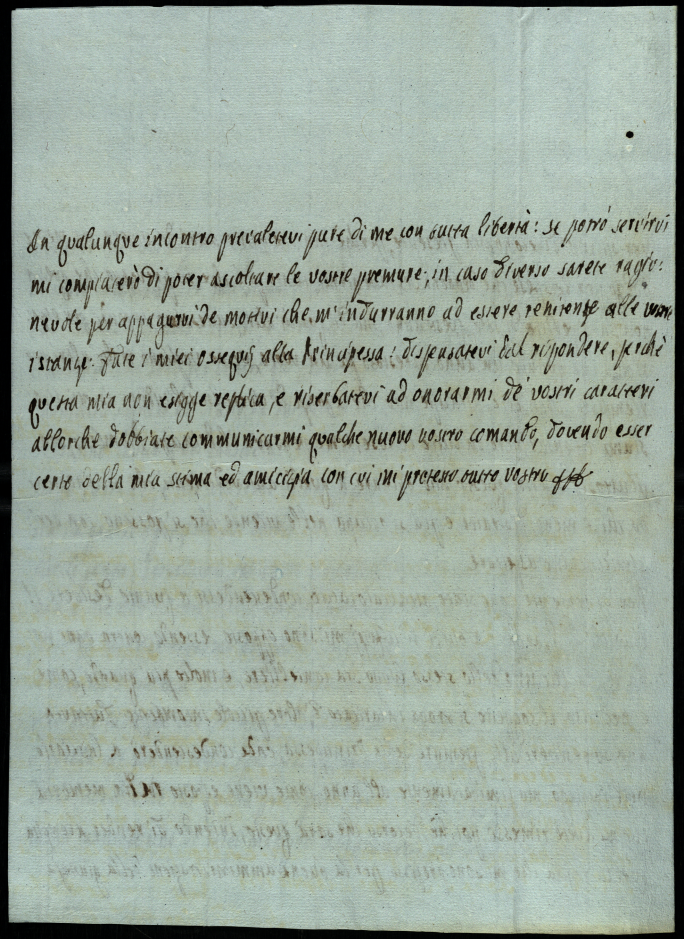 In qualunque incontro prevaletevi pure di me con tutta libertà: se potrò servirvi
mi compiacerò di poter ascoltare le vostre premure; in caso diverso sarete ragio:
nevole per appagarvi de motivi che m'indurranno ad essere renitente alle vostre
istanze. Fate i miei ossequj alla Principessa: dispensatevi dal rispondere, perchè
questa mia non esigge replica, e riserbatevi ad onorarmi de' vostri caratteri
allorchè dobbiate communicarmi qualche nuovo vostro comando, dovendo esser
certo della mia stima ed amicizia con cui mi protesto tutto vostro